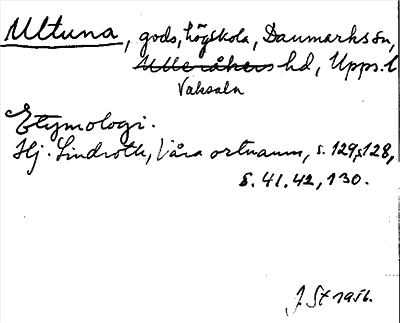 Ultuna, gods, högskola, Danmarks sn,
Ulleråkers hd, Upps. l
Vaksala
Etymologi.
Hj. Lindroth, Våra ortnamn, s. 129, s. 128,
s. 41. 42, 130.
J. St 1956.